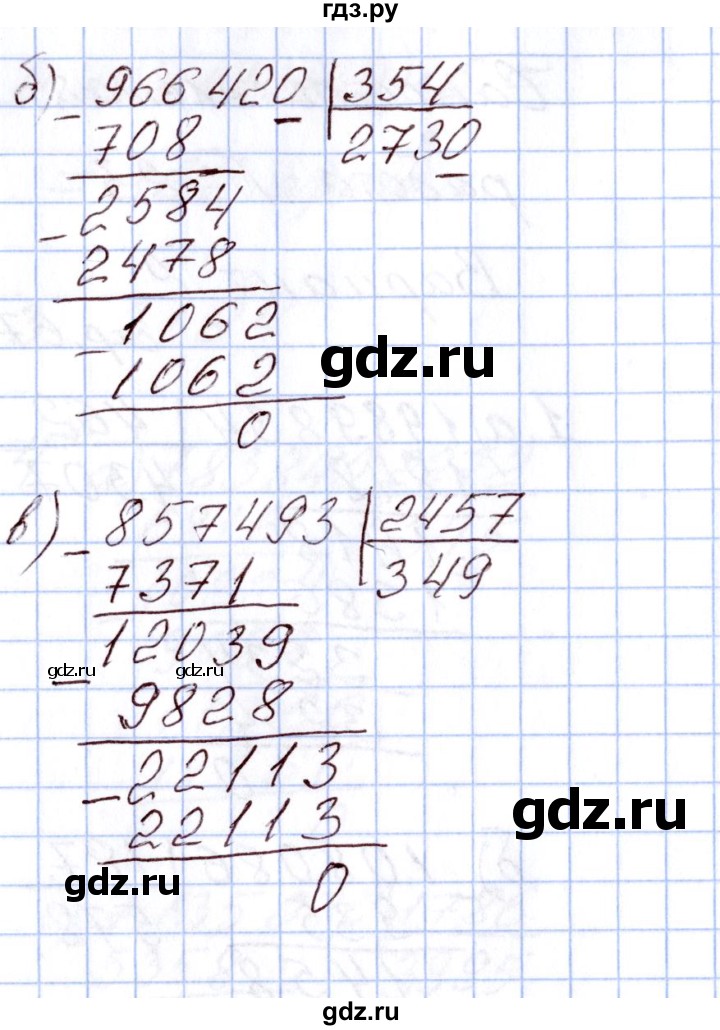 гдз.ру
б) 966420 | 354
- 708 2730
2584
- 2478
1062
- 1062
gdz.ru
0
в) 857493 | 2457
- 7371 349
12039
gdz.ru gdz.ru
- 9828
22113
- 22113
gdz.ru
0
gdz.ru
gdz.ru